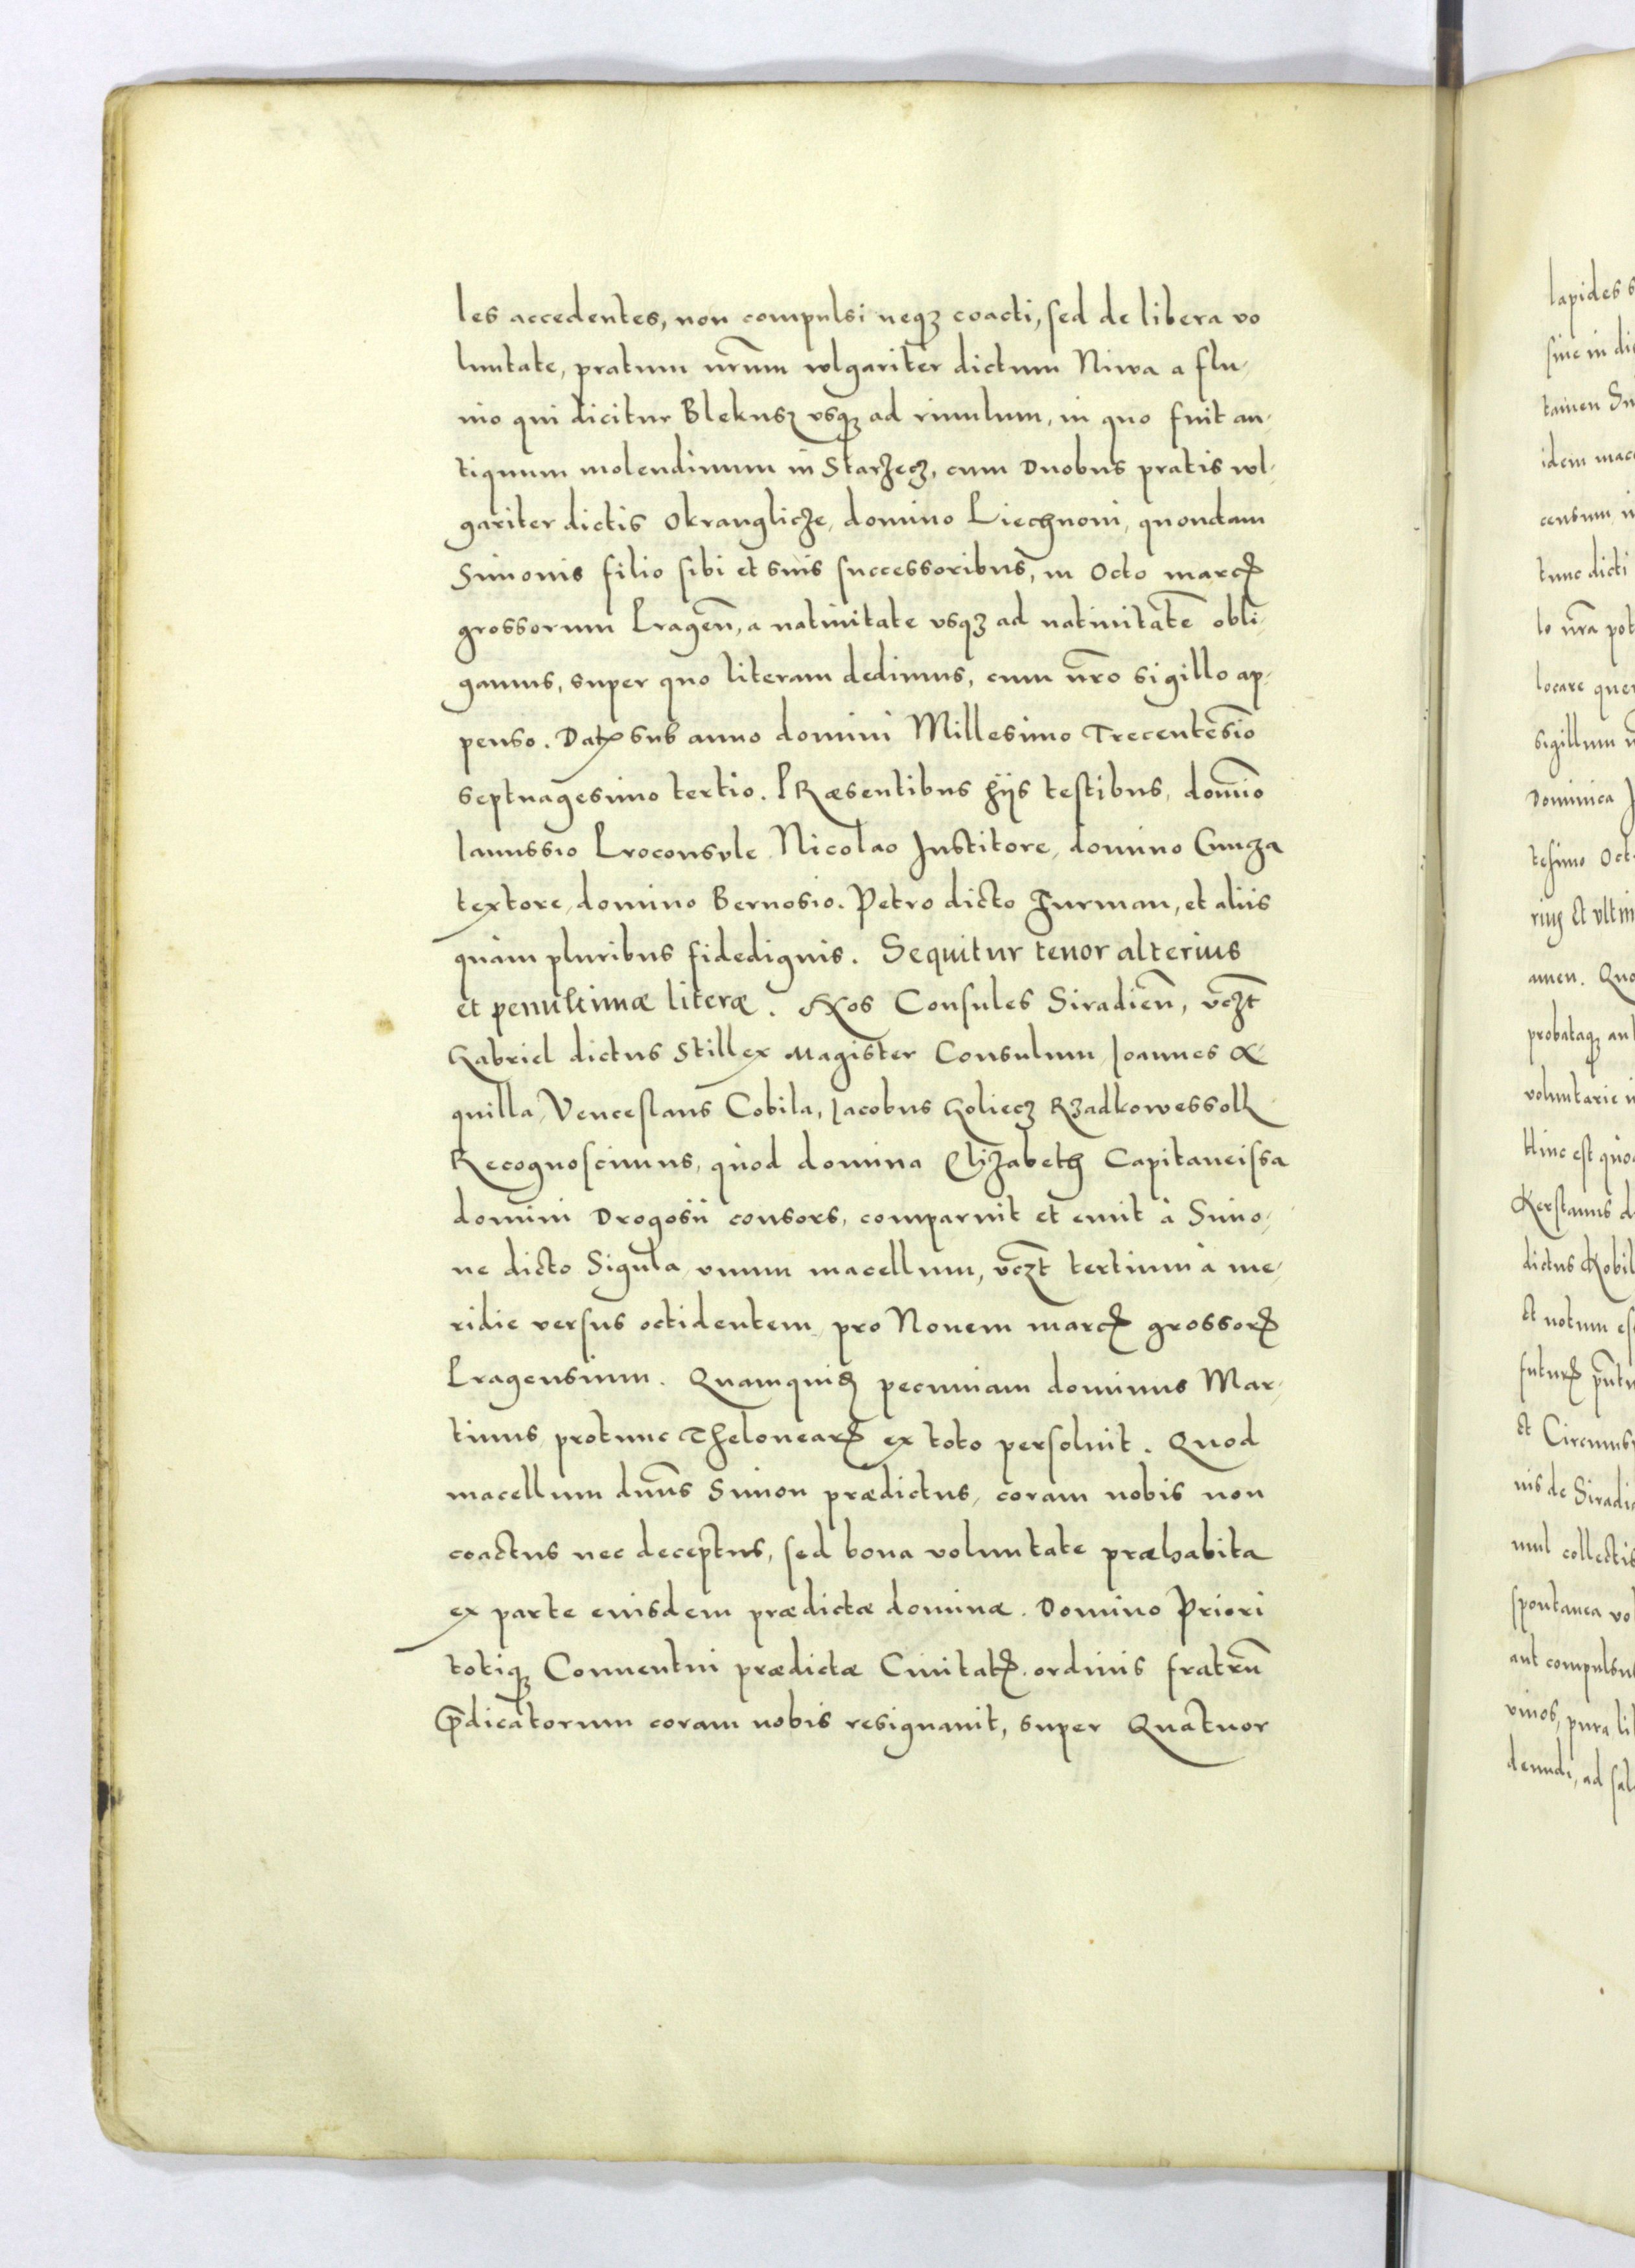 les accedentes, non compulsi neqꝫ coacti, sed de libera vo
luntate, pratum nr̃um wlgariter dictum Niwa a flu,
uio qui dicitur Blekusz vsqꝫ ad riuulum, in quo fuit an,
tiquum molendinum in Starzecz, cum Duobus pratis wl,
gariter dictis Okranglicze, domino Liechnoni, quondam
Simonis filio sibi et suis successoribus, in Octo marcꝝ
grossorum Pragen̄, a natiuitate vsqꝫ ad natiuitatē obli,
gamus, super quo literam dedimus, cum nr̃o sigillo ap,
penso. Datꝝ sub anno domini Millesimo Trecentesīo
septuagesimo tertio. PRæsentibus hijs testibus, domīo
Ianussio Proconsvle Nicolao Institore, domino Cunza
textore, domino Bernosio. Petro dicto Furman, et aliis
quàm pluribus fidedignis. Sequitur tenor alterius
et penultimæ literæ. Nos Consules Siradien̄, vcꝫt
Gabriel dictus Stillex Magister Consulum, Ioannes A
quilla, Venceslaus Cobila, Iacobus Goliecz Rzadkowessoll
Recognoscimus, quòd domina Elizabeth Capitaneissa
domini Drogosii consors, comparuit et emit à Simo,
ne dicto Sigula vnum macellum, vcꝫt tertium à me,
ridie versus octidentem, pro Nouem marcꝝ grossorꝝ
Pragensium. Quamquidꝫ pecuniam dominus Mar,
tinus protunc Thelonearꝝ ex toto persoluit. Quod
macellum dn̄us Simon prædictus, coram nobis non
coactus nec deceptus, sed bona voluntate præhabita
ex parte eiusdem prædictæ dominæ. Domino Priori
totiqꝫ Conuentui prædictæ Ciuitatꝝ. ordinis fratrū
P̄dicatorum coram nobis resignauit, super Quatuor
lapides
siue in
tamen
idem
censum
tunc dicti
lo nr̃a
locare
sigillum
Dominica
tesimo
et vltim
amen.
probataqꝫ
voluntarie
Hinc est
Kerstanus
dictus Kobil
Et notum
futurꝝ
et
nis de
collectis
spontanea
aut
pura
ad